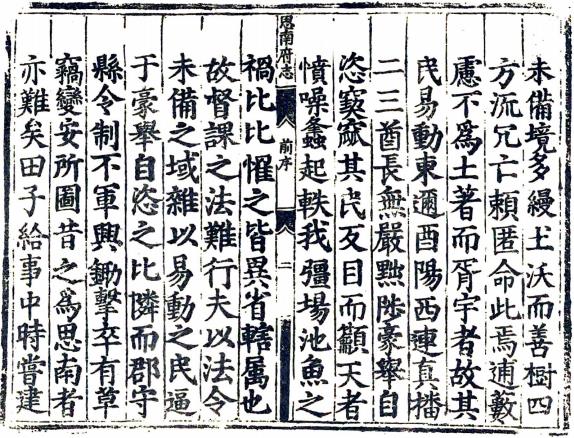 未備境多縵土沃而善樹四
方流冗亡賴匿命此焉逋藪
慮不爲土著而胥宇者故其
民易動東邇酉陽西連真播
二三酋長無嚴㸃陟豪舉自
恣其民互目而籲天者
憤噪螽起軼我彊場池魚之
思南府志
前序
二
禍比比罹之皆異省轄属也
故督課之法難行夫以法令
未備之域雜以易動之民逼
于豪舉自恣之比隣而郡守
縣令制不軍興鋤擊卒有草
竊變安所圖昔之爲思南者
亦難矣田子給事中時嘗建